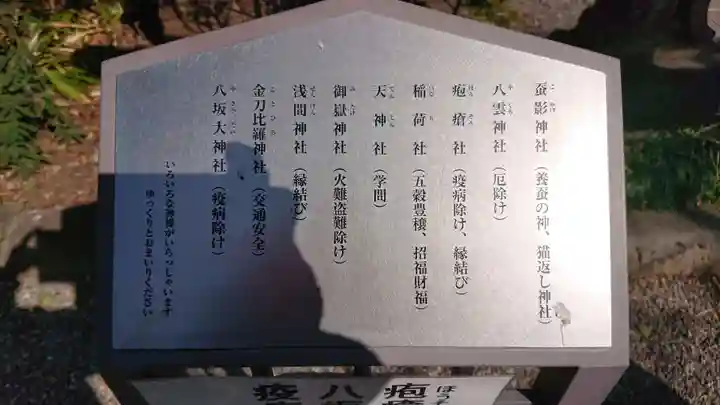 蚕影神社（養蚕の神、猫返し神社）
八雲神社（厄除け）
疱瘡社（疫病除け、縁結び）
稲荷社（五穀豊穣、招福財福）
天神社（学問）
御嶽神社（火難盗難除け）
浅間神社（縁結び）
金刀比羅神社（交通安全）
八坂大神社（疫病除け）
いろいろな神様がいらっしゃいます
ゆっくりとおまいりください